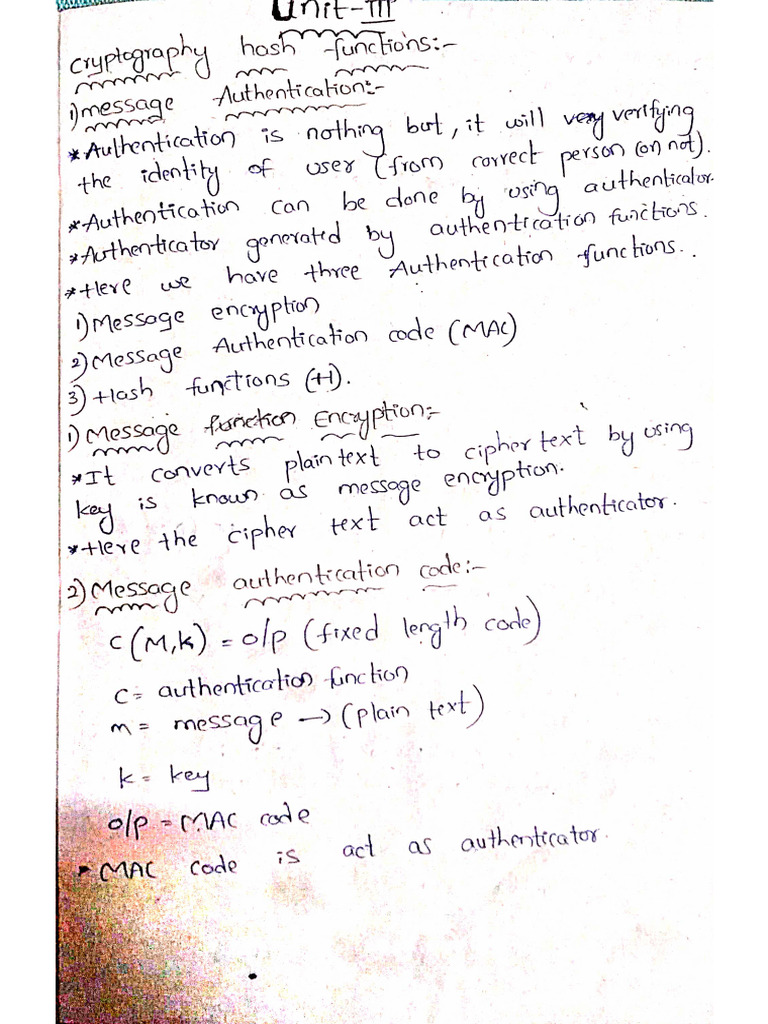 Unit-III
Cryptography hash functions:-
1) message Authentication:-
* Authentication is nothing but, it will very verifying
the identity of user (from correct person (or) not).
* Authentication can be done by using authenticator.
* Authenticator generated by authentication functions.
* Here we have three Authentication functions.
1) Message encryption
2) Message Authentication code (MAC)
3) Hash functions (H).
1) Message function Encryption:-
* It converts plain text to cipher text by using
key is known as message encryption.
* Here the cipher text act as authenticator.
2) Message authentication code:-
C(M,K) = o/p (fixed length code)
C = authentication function
m = message → (plain text)
k = key
o/p = MAC code
- MAC code is act as authenticator.